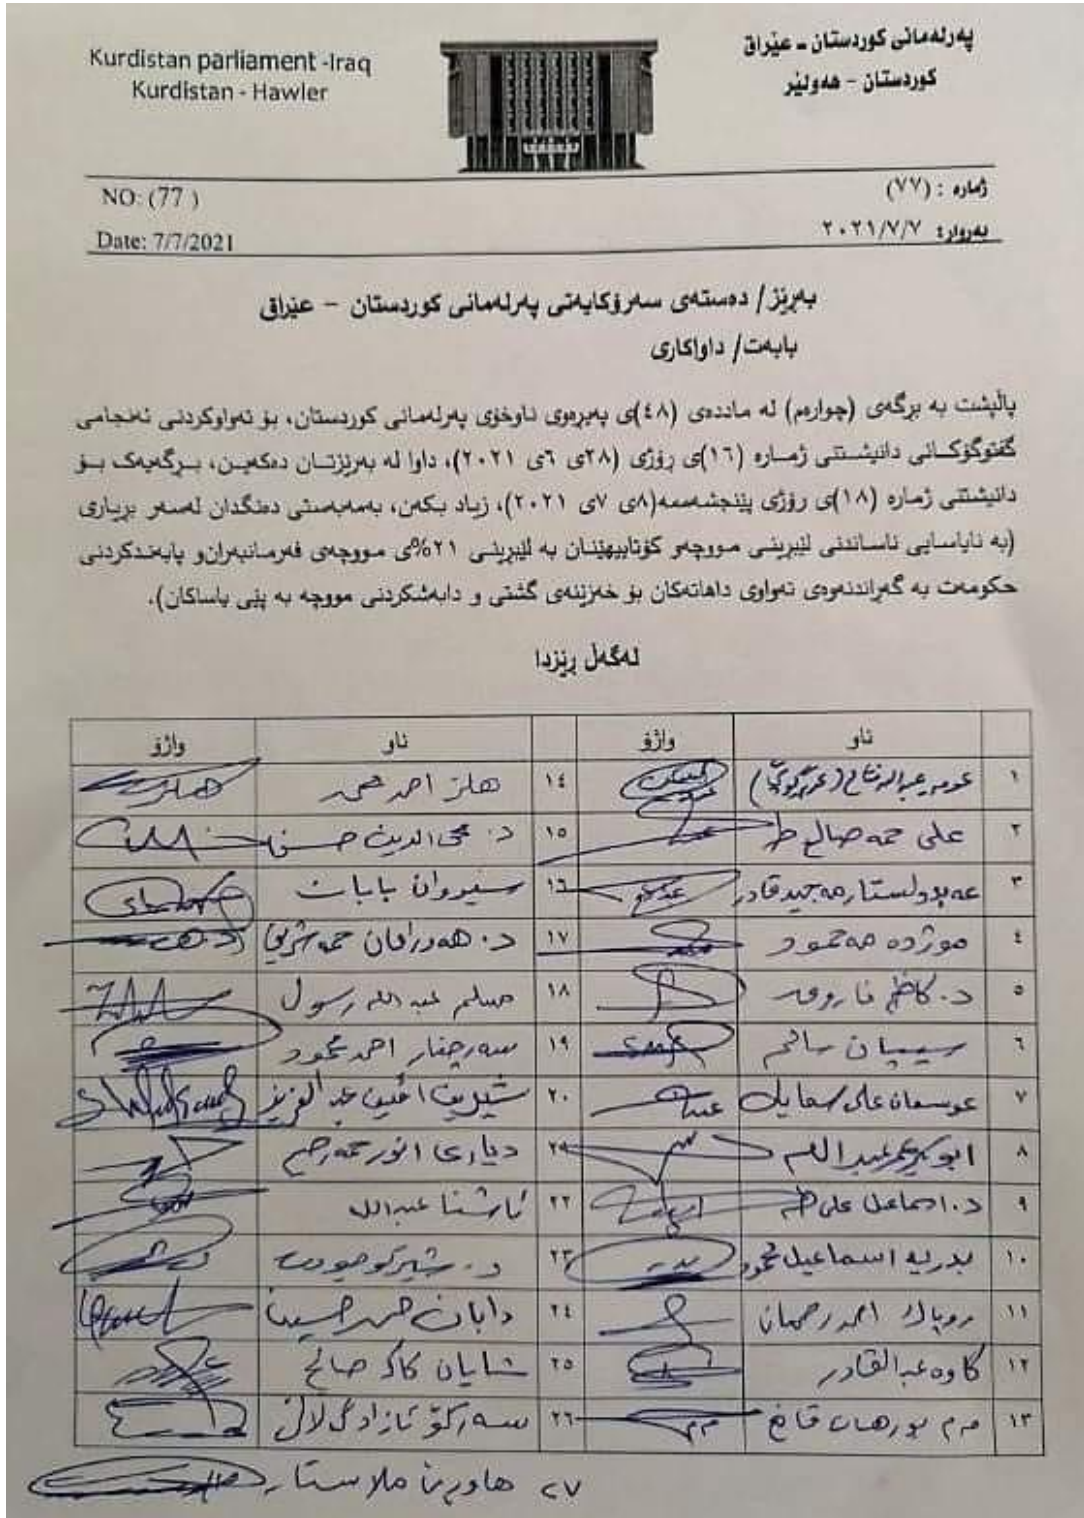 Kurdistan parliament -Iraq
Kurdistan - Hawler
پەرلەمانی کوردستان - عێراق
کوردستان - هەولێر
NO: (77 )
Date: 7/7/2021
ژمارە : (٧٧)
بەروار: ٢٠٢١/٧/٧
بەڕێز/ دەستەی سەرۆکایەتی پەرلەمانی کوردستان - عێراق
بابەت/ داواکاری
پاڵپشت بە بڕگەی (چوارەم) لە ماددەی (٤٨)ی پەیڕەوی ناوخۆی پەرلەمانی کوردستان، بۆ تەواوکردنی ئەنجامی
گفتوگۆکانی دانیشتنی ژمارە (١٦)ی ڕۆژی (٢٨ی ٦ی ٢٠٢١)، داوا لە بەڕێزتان دەکەین، بڕگەیەک بۆ
دانیشتنی ژمارە (١٨)ی رۆژی پێنجشەممە(٨ی ٧ی ٢٠٢١)، زیاد بکەن، بەمەبەستی دەنگدان لەسەر بڕیاری
(بە نایاسایی ناساندنی لێبڕینی مووچەو کۆتاییهێنان بە لێبڕینی ٢١%ی مووچەی فەرمانبەران‌و پابەندکردنی
حکومەت بە گەڕاندنەوەی تەواوی داهاتەکان بۆ خەزێنەی گشتی و دابەشکردنی مووچە بە پێی یاساکان).
لەگەڵ ڕێزدا
ناو واژۆ ناو واژۆ
١ ١٤
٢ علی حمە صالح طە ١٥ د. محی الدین حسن
٣ عەبدولستار مەجید قادر ١٦ سیروان بابان
٤ موژدە مەحمود ١٧
٥ د. کاظم فاروق ١٨ مسلم عبداللە رسول
٦ سیپان سالم ١٩ سەرچنار احمد محمود
٧ ٢٠ شیرین امین عبدالعزیز
٨ ابوبکر عمر عبداللە ٢١ دیاری انور حمەرحیم
٩ د. اسماعیل علی طە ٢٢ ئاشنا عبداللە
١٠ بدریە اسماعیل محمود ٢٣
١١ روپاک احمد رحمان ٢٤ دابان
١٢ کاوە عبدالقادر ٢٥ شایان کاکە صالح
١٣ م.م بورهان قانع ٢٦ سەرکۆ ئازاد گەڵاڵی
٢٧ هاوڕێ ملا ستار